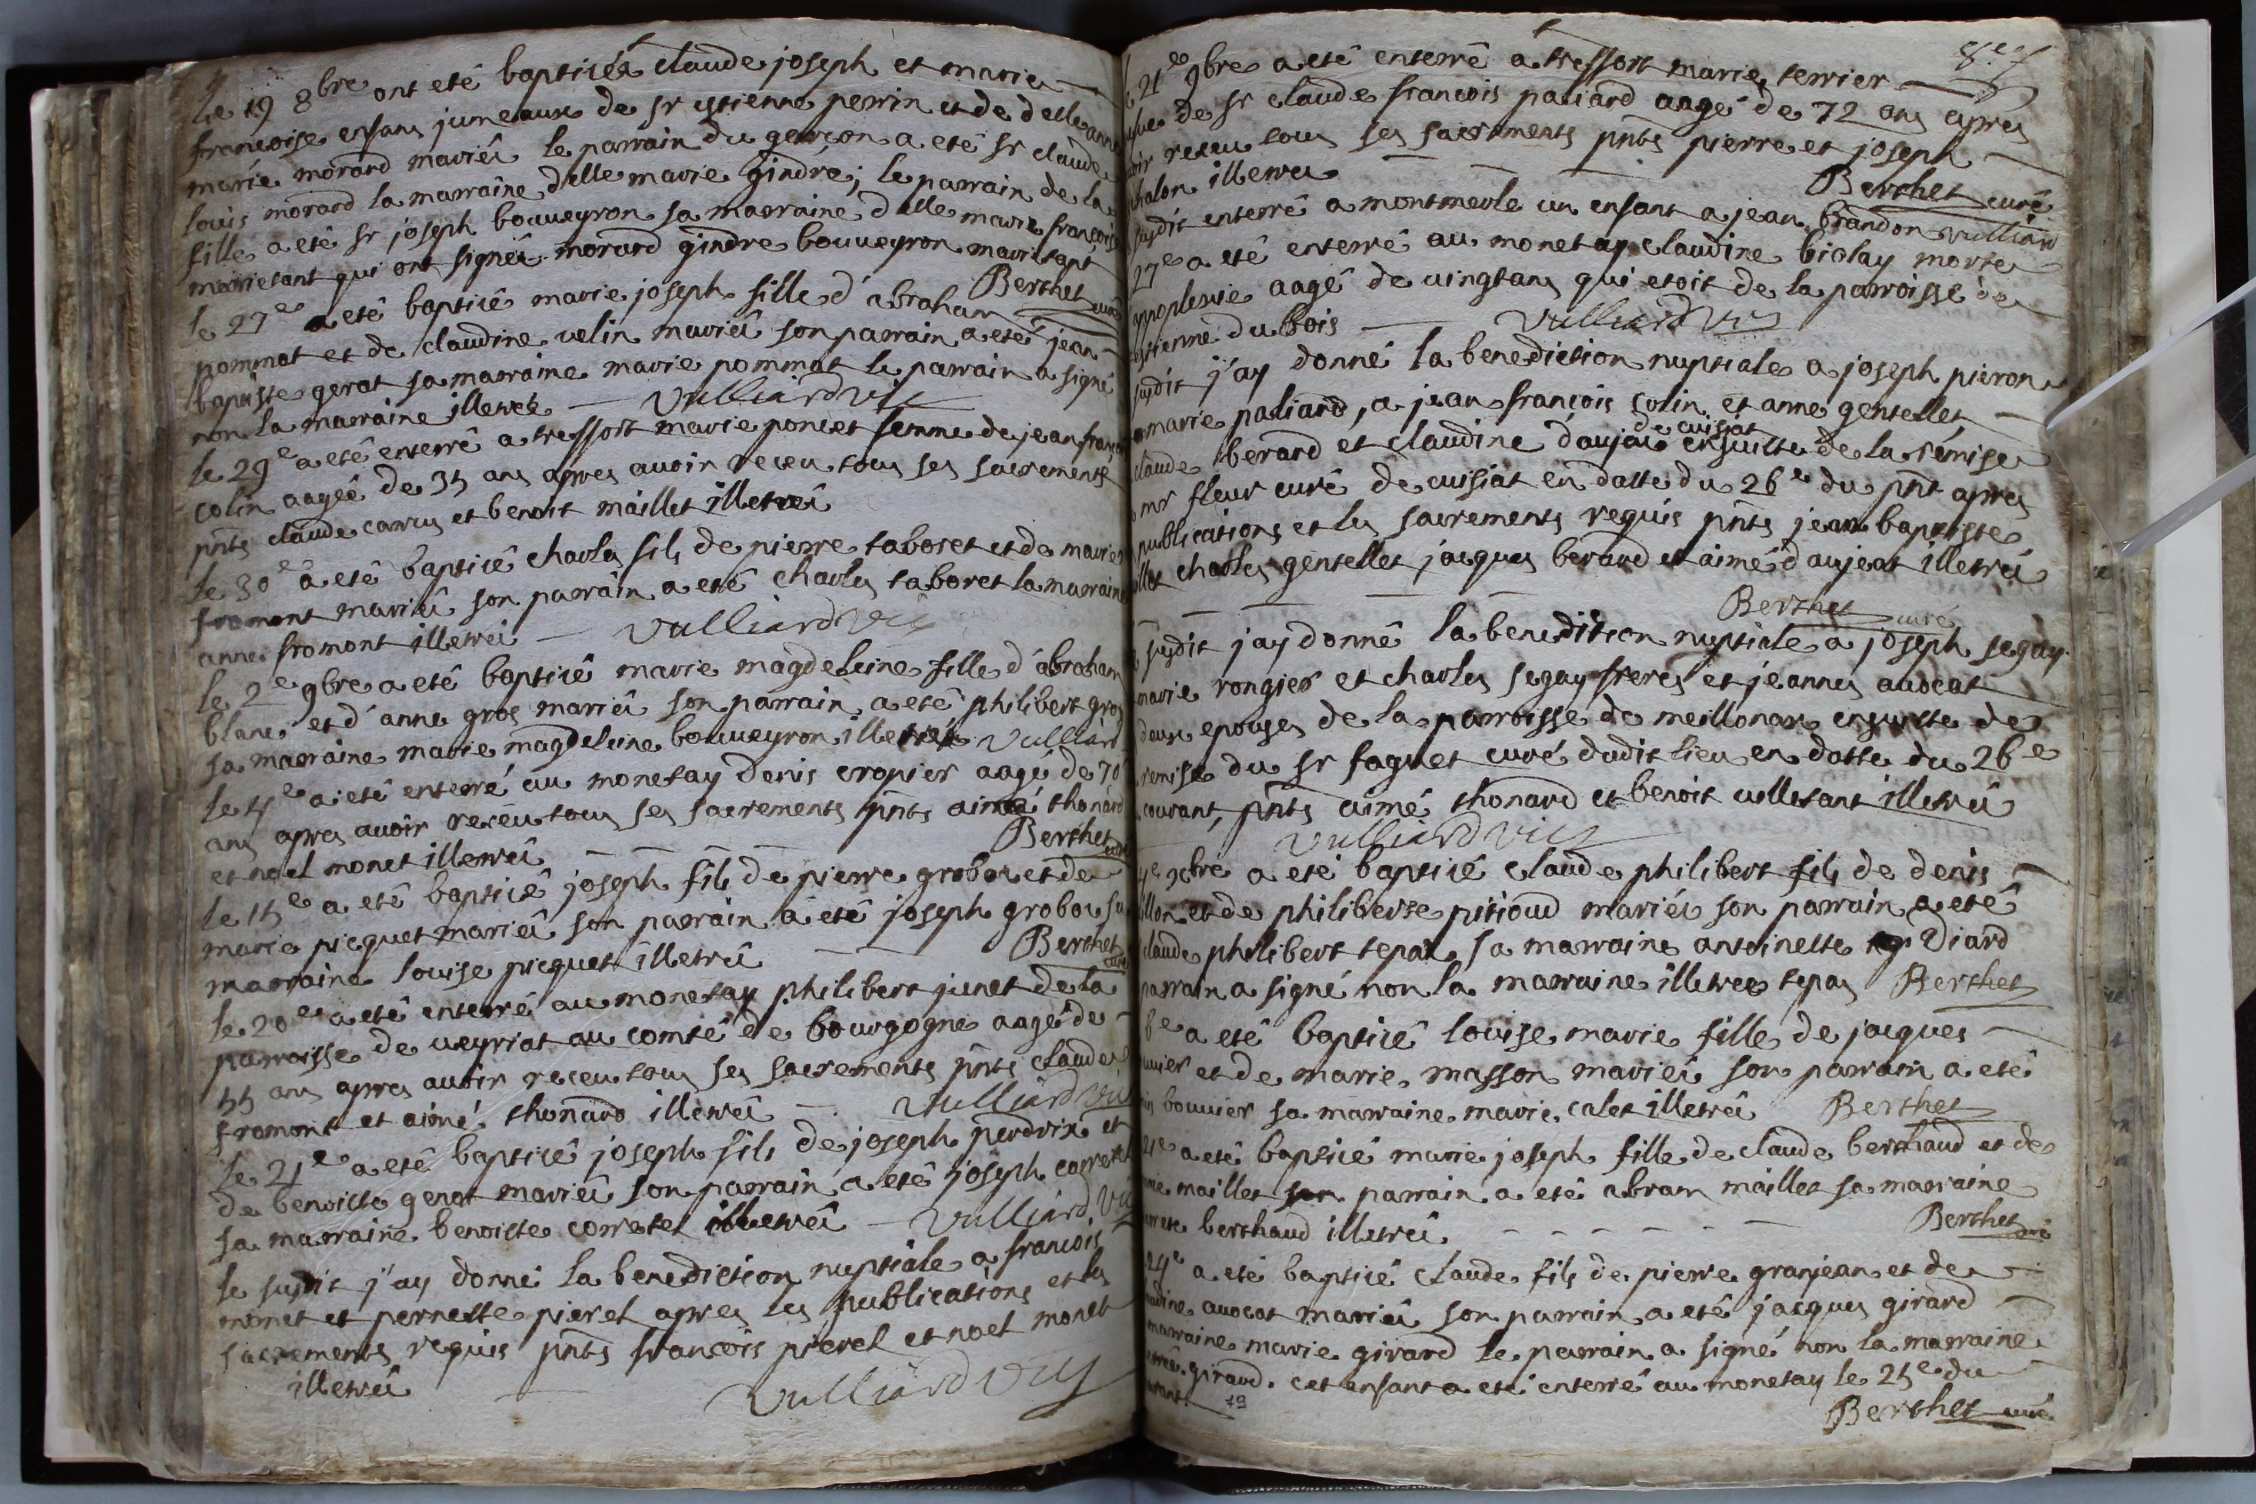 Le 19 8bre ont eté baptisés claude joseph et marie
francoise enfans jumeaux de sr estienne perrin et de delle anne
marie morard mariés le parrain du garçon a eté sr claude
louis morard la marraine delle marie gindre; le parrain de la
fille a eté sr joseph bouueyron sa marraine delle marie françoise
marietant qui ont signés morard gindre bouueyron marietant
Berthet curé
le 27e a eté baptisé marie joseph fille d'abraham
pommat et de claudine velin mariés son parrain a eté jean
baptiste gerat sa marraine marie pommat le parrain a signé
non la marraine illetrée Vulliard vic
le 29e a eté enterré a treffort marie poncet femme de jean françois
colin aagée de 35 ans apres auoir receu tous ses sacrements
pnts claude carrus et benoit maillet illetrés
le 30e a eté baptisé charles fils de pierre taboret et de marie
fromont mariés son parrain a eté charles taboret la marraine
anne fromont illetrés Vulliard vic
le 2e 9bre a eté baptisé marie magdeleine fille d'abraham
blanc et d'anne gros mariés son parrain a eté philibert gros
sa marraine marie magdeleine bouueyron illetrés Vulliard
le 4e a eté enterré au monetay denis cropier aagé de 70
ans apres auoir receu tous ses sacrements pnts aimé thonard
et noel monet illetrés Berthet curé
le 15e a eté baptisé joseph fils de pierre grobou et de
marie picquet mariés son parrain a eté joseph grobou sa
marraine louise picquet illetrés Berthet curé
le 20e a eté enterré au monetay philibert junet de la
parroisse de ueyriat au comté de bourgogne aagé de
55 ans apres auoir receu tous ses sacrements pnts claude
fromont et aimé thonard illetrés Vulliard vic
le 21e a eté baptisé joseph fils de joseph perdrix et
de benoitte gerat mariés son parrain a eté joseph carretet
sa marraine benoitte corretet illetrés Vulliard vic
le susdit j'ay donné la benediction nuptiale a francois
monet et pernette pierel apres les publications et les
sacrements requis pnts francois pierel et noel monet
illetrés Vulliard vic
21e 9bre a eté enterré a treffort marie terrier
de sr claude francois paliard aagé de 72 ans apres
receu tous ses sacrements pnts pierre et joseph
chalon illetrés Berthet curé
susdit enterré a montmerle un enfant a jean brandon Vulliard
27e a eté enterré au monetay claudine biolay morte
appoplexie aagé de uingt ans qui etoit de la parroisse de
estienne du bois Vulliard vic
susdit j'ay donné la benediction nuptiale a joseph pieron
marie paliard, a jean francois colin et anne gentellet,
de cuisiat
claude berard et claudine daujat ensuitte de la remise
mr fleur curé de cuisiat en datte du 26e du pnt apres
publications et les sacrements requis pnts jean baptiste
charles gentellet jacques berard et aimé daujeat illetrés
Berthet curé
susdit j'ay donné la benediction nuptiale a joseph segay
marie rongier et charles segay freres et jeanne auocat
deux epouses de la parroisse de meillonas ensuitte de
remise du sr faguet curé dudit lieu en datte du 26e
courant, pnts aimé thonard et benoit uilletant illetrés
Vulliard vic
xbre a eté baptisé claude philibert fils de denis
et de philiberte pitioud mariés son parrain a eté
claude philibert tepas sa marraine antoinette diard
parrain a signé non la marraine illetrée tepas Berthet
a eté baptisé louise marie fille de jacques
et de marie masson mariés son parrain a eté
bouuier sa marraine marie calet illetrés Berthet
a eté baptisé marie joseph fille de claude berthaud et de
maillet son parrain a eté abram maillet sa marraine
berthaud illetrés Berthet curé
24e a eté baptisé claude fils de pierre granjean et de
auocat mariés son parrain a eté jacques girard
marraine marie girard le parrain a signé non la marraine
girard. cet enfant a eté enterré au monetay le 25e du
courant Berthet curé